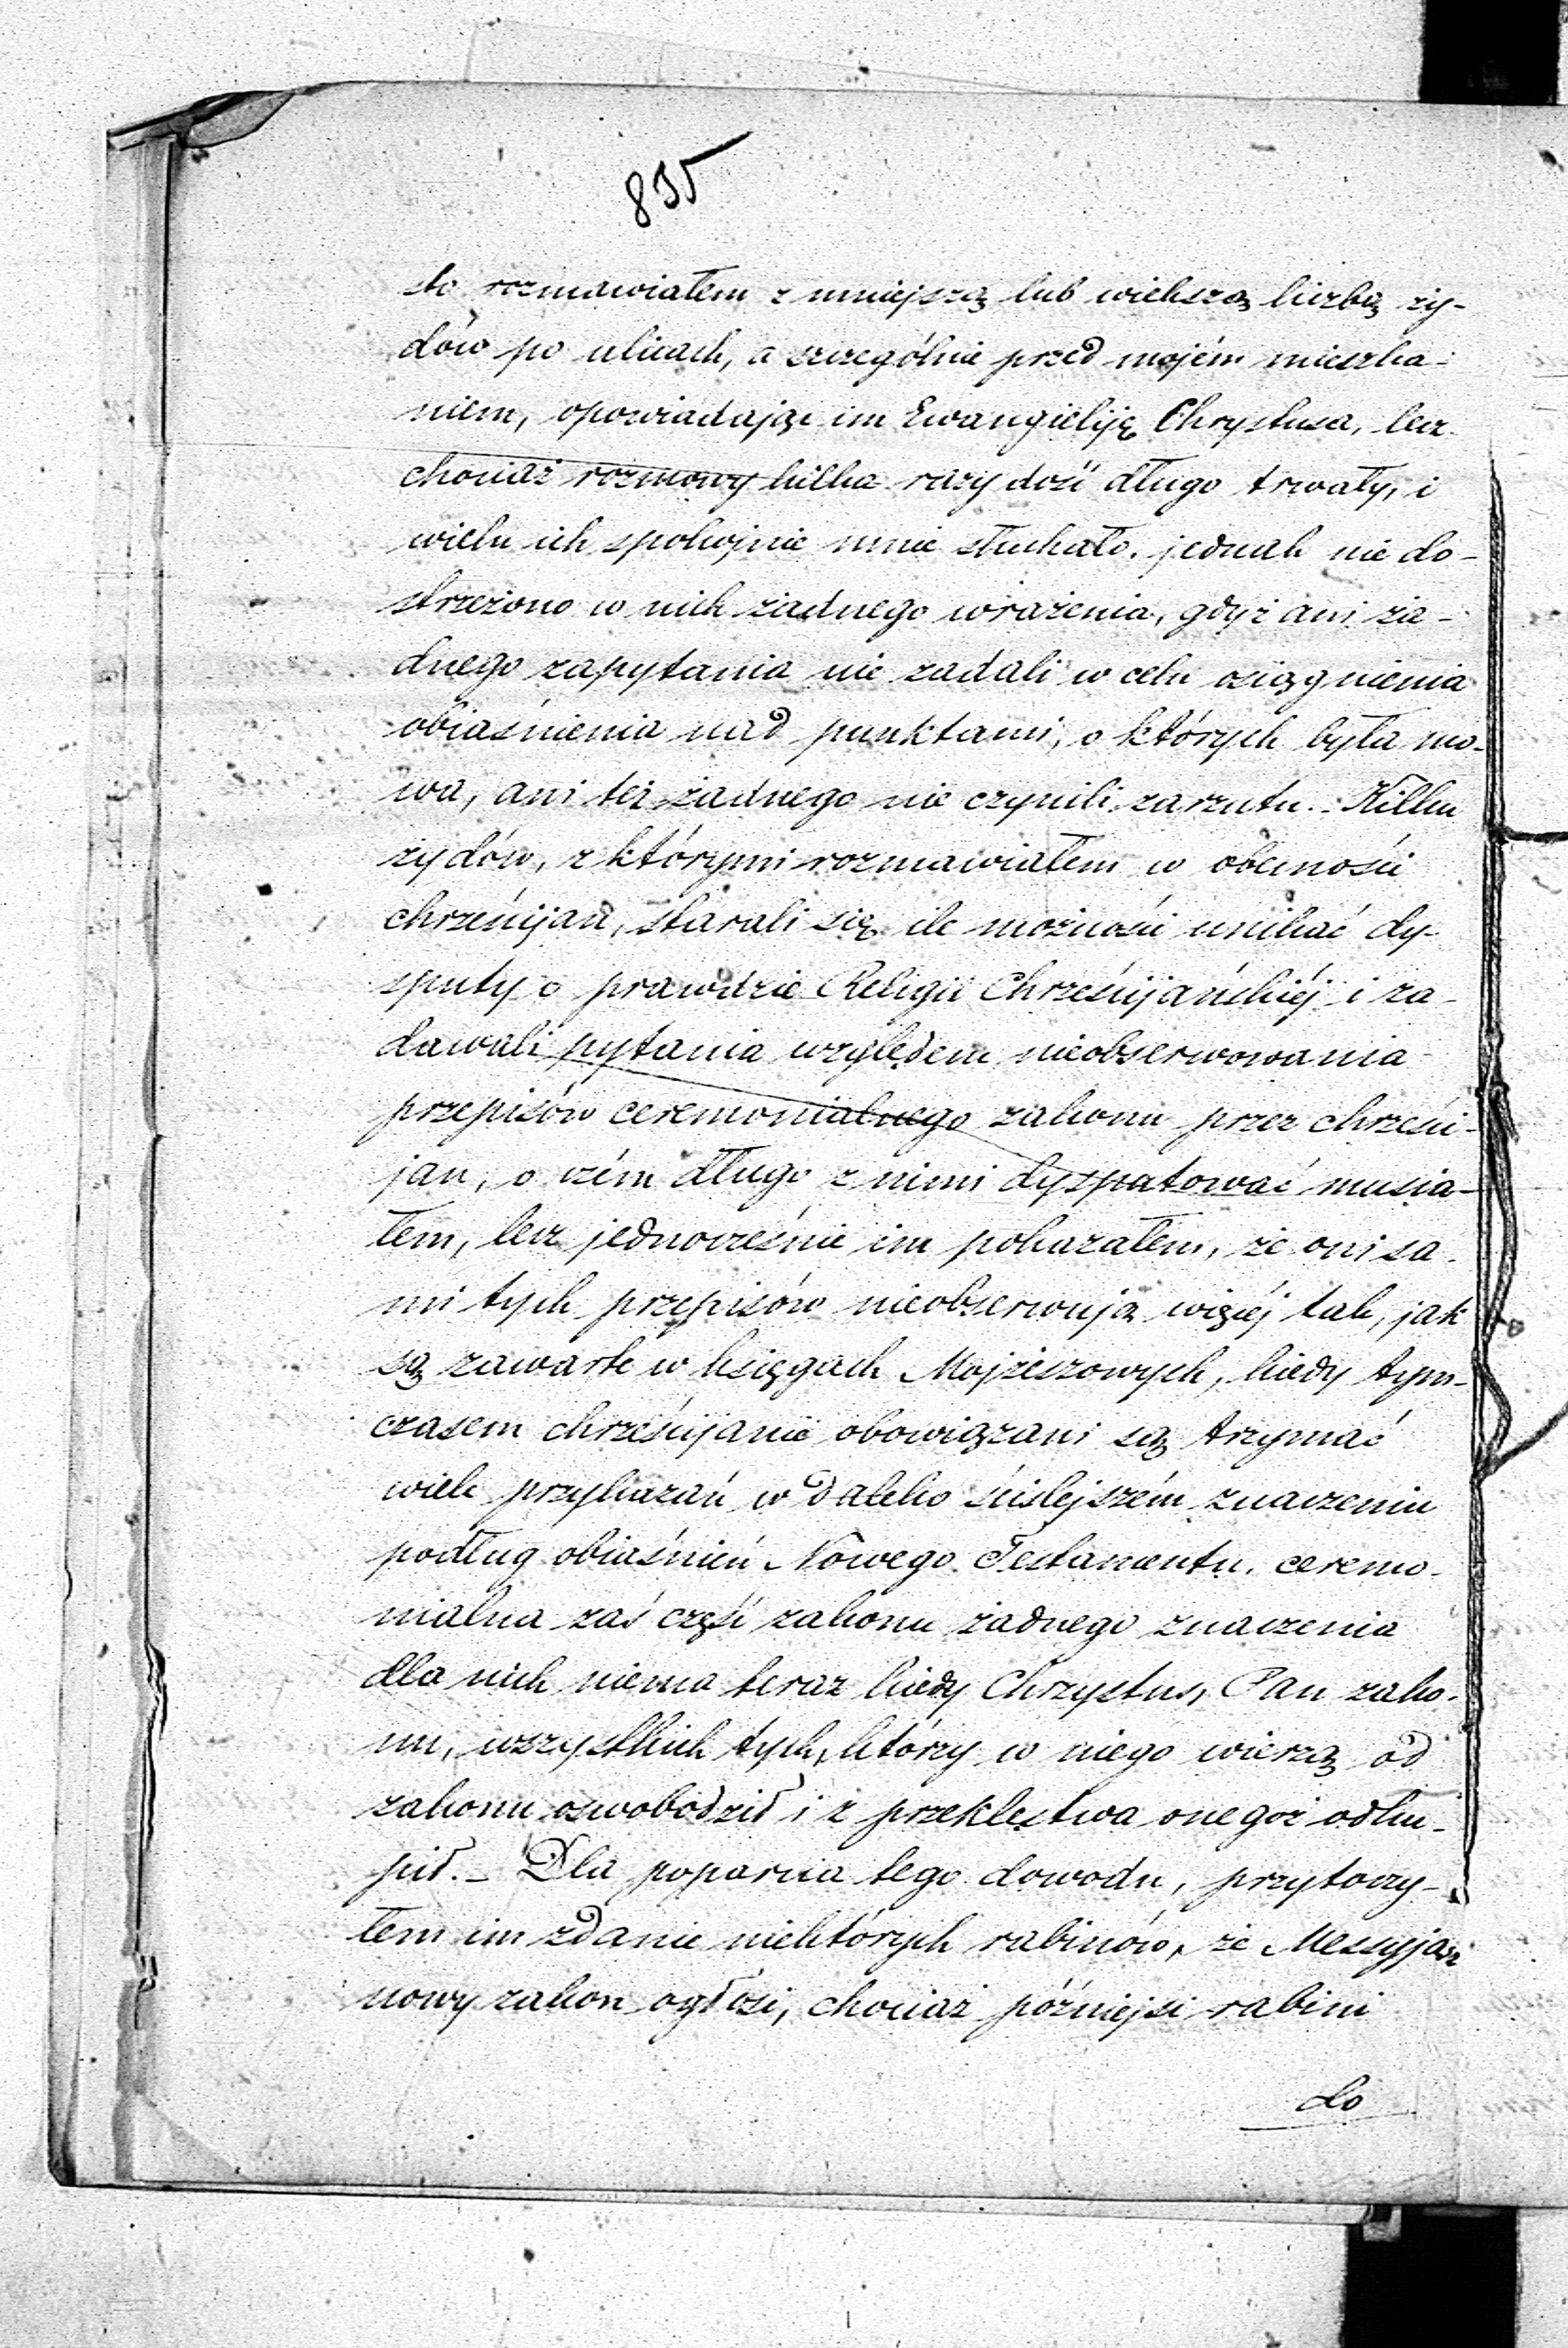 835
sto rozmawiałem z mniejszą lub większą liczbą ży-
dów po ulicach, a szczególnie przed mojém mieszka-
niem, opowiadając im Ewangieliję Chrystusa, lecz
chociaż rozmowy kilka razy dość długo trwały, i
wielu ich spokojnie mnie słuchało, jednak nie do-
strzeżono w nich żadnego wrażenia, gdyż ani ża-
dnego zapytania nie zadali w celu osiągnienia
obiaśnienia nad punktami, o których była mo-
wa, ani też żadnego nie czynili zarzutu. Kilku
żydów, z którymi rozmawiałem w obecności
chrześcijan, starali się ile możności unikać dy-
sputy o prawdzie Religii Chrześcijańskiéj i za-
dawali pytania względem nieobserwowania
przepisów ceremonialnego zakonu przez chrześci-
jan, o czém długo z nimi dysputować musia-
łem, lecz jednocześnie im pokazałem, że oni sa-
mi tych przepisów nieobserwują więcéj tak, jak
są zawarte w księgach Mojżeszowych, kiedy tym-
czasem chrześcijanie obowiązani są trzymać
wiele przykazań w daleko ściślejszém znaczeniu
podług obiaśnień Nowego Testamentu, ceremo-
nialna zaś część zakonu żadnego znaczenia
dla nich niema teraz kiedy Chrzystus, Pan zako-
nu, wszystkich tych, którzy w niego wierzą od
zakonu oswobodził i z przeklęstwa onegoż odku-
pił.- Dla poparcia tego dowodu, przytoczy-
łem im zdanie niektórych rabinów, że Messyjasz
nowy zakon ogłosi, chociaż późniejsi rabini
do